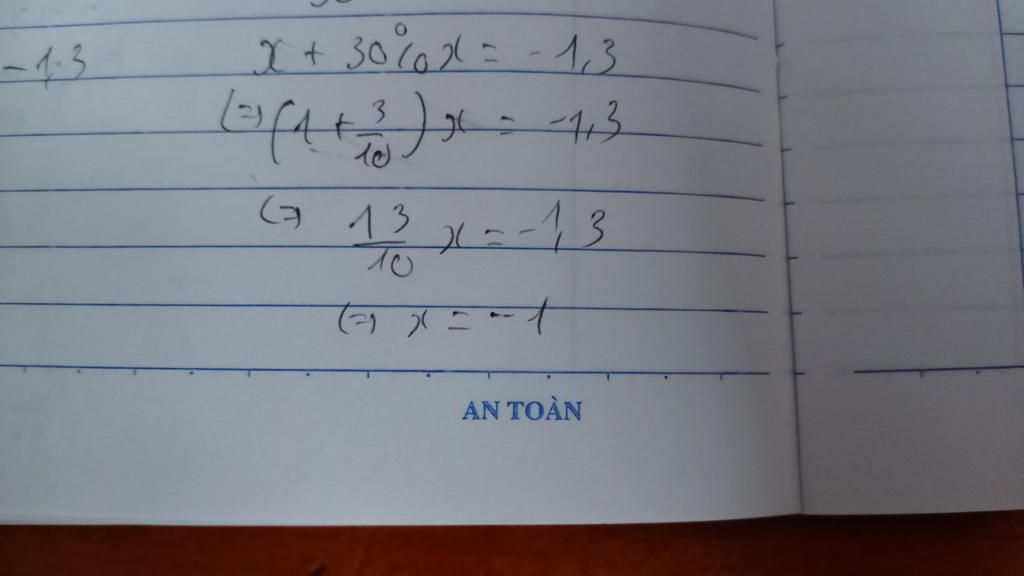 -1.3
x + 30% x = -1,3
(=) (1 + 3/10) x = -1,3
(=) 13/10 x = -1,3
(=) x = -1
AN TOÀN